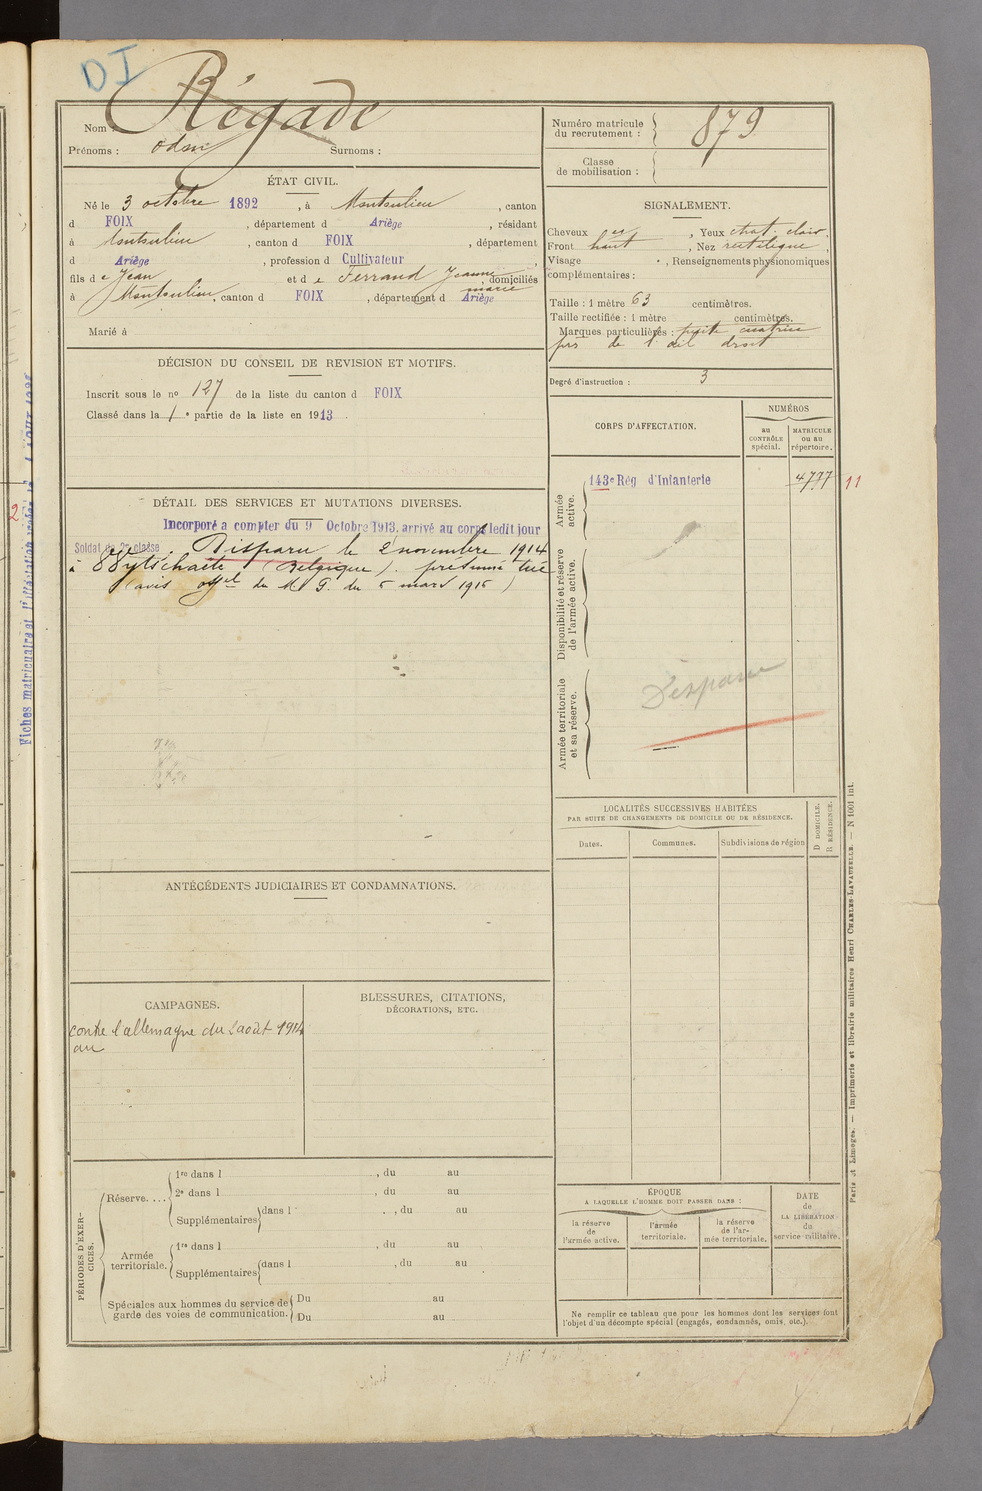 DI
Nom : Régade
Prénoms : Odon Surnoms :
ÉTAT CIVIL.
Né le 3 octobre 1892, à Montoulieu, canton
d FOIX, département d Ariège, résidant
à Montoulieu, canton d FOIX, département
d Ariège, profession d Cultivateur,
fils de Jean et de Ferrand Jeanne marie, domiciliés
à Montoulieu, canton d FOIX, département d Ariège
Marié à
DÉCISION DU CONSEIL DE REVISION ET MOTIFS.
Inscrit sous le no 127 de la liste du canton d FOIX
Classé dans la 1e partie de la liste en 1913.
DÉTAIL DES SERVICES ET MUTATIONS DIVERSES.
Incorporé a compter du 9 Octobre 1913. arrivé au corps ledit jour
Soldat de 2e classe. Disparu le 2 novembre 1914
à Wytschaete (Belgique). présumé tué
(avis offel du M G. du 5 mars 1915)
ANTÉCÉDENTS JUDICIAIRES ET CONDAMNATIONS.
CAMPAGNES.
contre l'allemagne du 2 août 1914
au
BLESSURES, CITATIONS,
DÉCORATIONS, ETC.
PÉRIODES D'EXERCICES.
Réserve....
1re dans l , du au
2e dans l , du au
Supplémentaires dans l , du au
Armée territoriale.
1re dans l , du au
Supplémentaires dans l , du au
Spéciales aux hommes du service de
garde des voies de communication.
Du au
Du au
Numéro matricule
du recrutement : 879
Classe
de mobilisation :
SIGNALEMENT.
Cheveux , Yeux chat. clair.
Front haut, Nez rectiligne,
Visage , Renseignements physionomiques
complémentaires :
Taille : 1 mètre 63 centimètres.
Taille rectifiée : 1 mètre centimètres.
Marques particulières : petite cicatrice
près de l'œil droit
Degré d'instruction : 3
CORPS D'AFFECTATION.
NUMÉROS
au
CONTRÔLE
spécial.
MATRICULE
ou au
répertoire.
Armée
active.
143e Rég d'Infanterie 4777 11
Disponibilité et réserve
de l'armée active.
Armée territoriale
et sa réserve.
Disparu
LOCALITÉS SUCCESSIVES HABITÉES
PAR SUITE DE CHANGEMENTS DE DOMICILE OU DE RÉSIDENCE.
Dates. Communes. Subdivisions de région
D DOMICILE.
R RÉSIDENCE.
ÉPOQUE
A LAQUELLE L'HOMME DOIT PASSER DANS :
la réserve
de
l'armée active.
l'armée
territoriale.
la réserve
de l'ar-
mée territoriale.
DATE
de
LA LIBÉRATION
du
service militaire.
Ne remplir ce tableau que pour les hommes dont les services font
l'objet d'un décompte spécial (engagés, condamnés, omis, etc.).
Paris et Limoges. — Imprimerie et librairie militaires Henri CHARLES-LAVAUZELLE. — N 1001 int.
Fiches matriculaire et
2